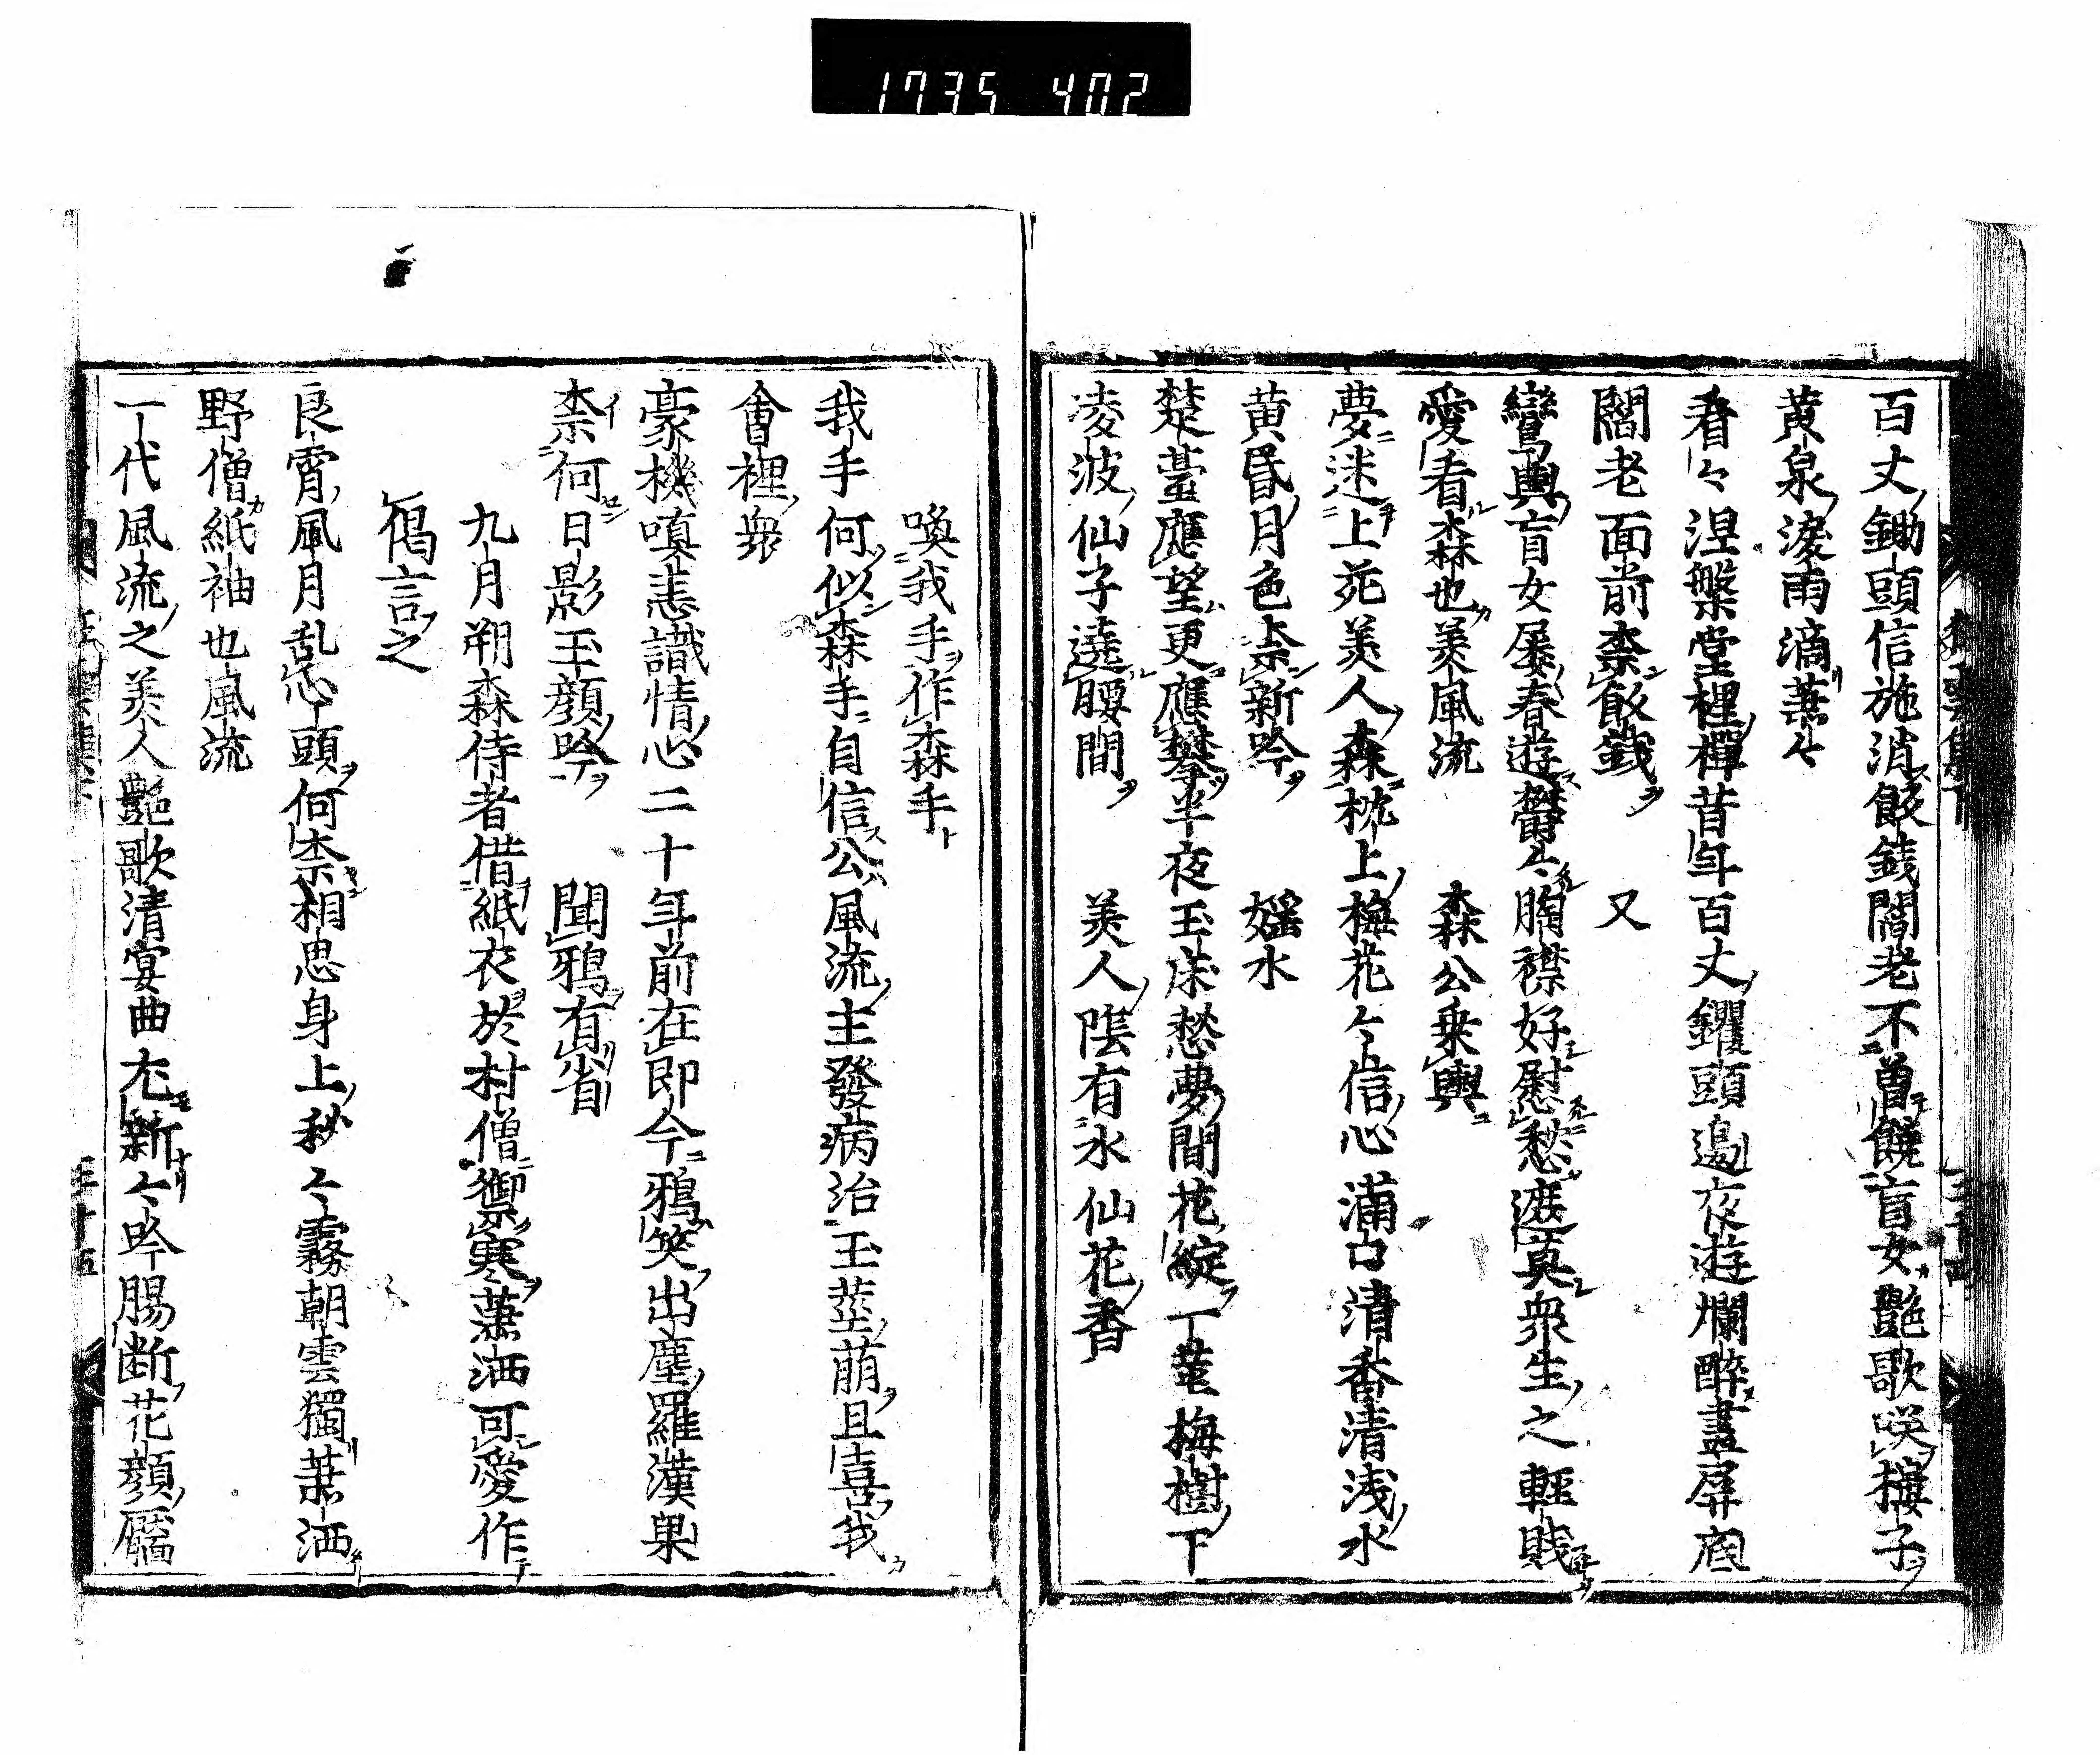 1735 402
百丈鋤頭信施消飯銭閻老不曽饒盲女艶歌咲楼子
黄泉涙雨滴蕭々
看々涅槃堂裡禅昔年百丈钁頭邊夜遊爛醉畫屏底
閻老面前柰飯銭　又
鸞輿盲女屡春遊欝々胸襟好慰愁遮莫衆生之軽賤
愛看森也美風流　森公乗輿
夢迷上苑美人森枕上梅花々信心満口清香清浅水
黄昏月色柰新吟　婬水
楚臺應望更應攀半夜玉床愁夢間花綻一茎梅樹下
凌波仙子遶腰間　美人陰有水仙花香
喚我手作森手
我手何似森手自信公風流主發病治玉茎萌且喜我
會裡衆
豪機嗔恚識情心二十年前在即今鴉笑出塵羅漢果
柰何日影玉顔吟　聞鴉有省
九月朔森侍者借紙衣於村僧禦寒蕭洒可愛作
偈言之
良宵風月乱心頭何柰相思身上秋々霧朝雲獨蕭洒
野僧紙袖也風流
一代風流之美人艶歌清宴曲尤新々吟腸断花顔靨